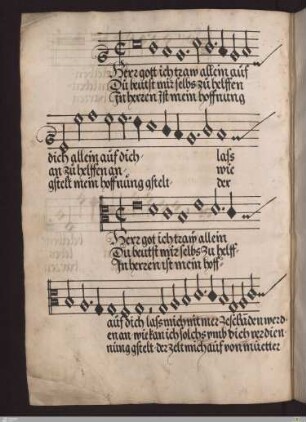 Herr gott ich traw allein auf
Du heutst mir selbs zu helffen
In herzen Ist mein hoffnung
dich allein auf dich. laß
an zu helffen an. wie
gstelt mein hoffnung gstelt. der
Herr got ich traw allein
Du heutst mir selbs zu helff.
In herzen ist mein hoff.
auf dich laß mich nit mer ze schanden werd
en an wie kan ich solchs vmb dich verdien
nung gstelt. der zelt mich auf von mueter